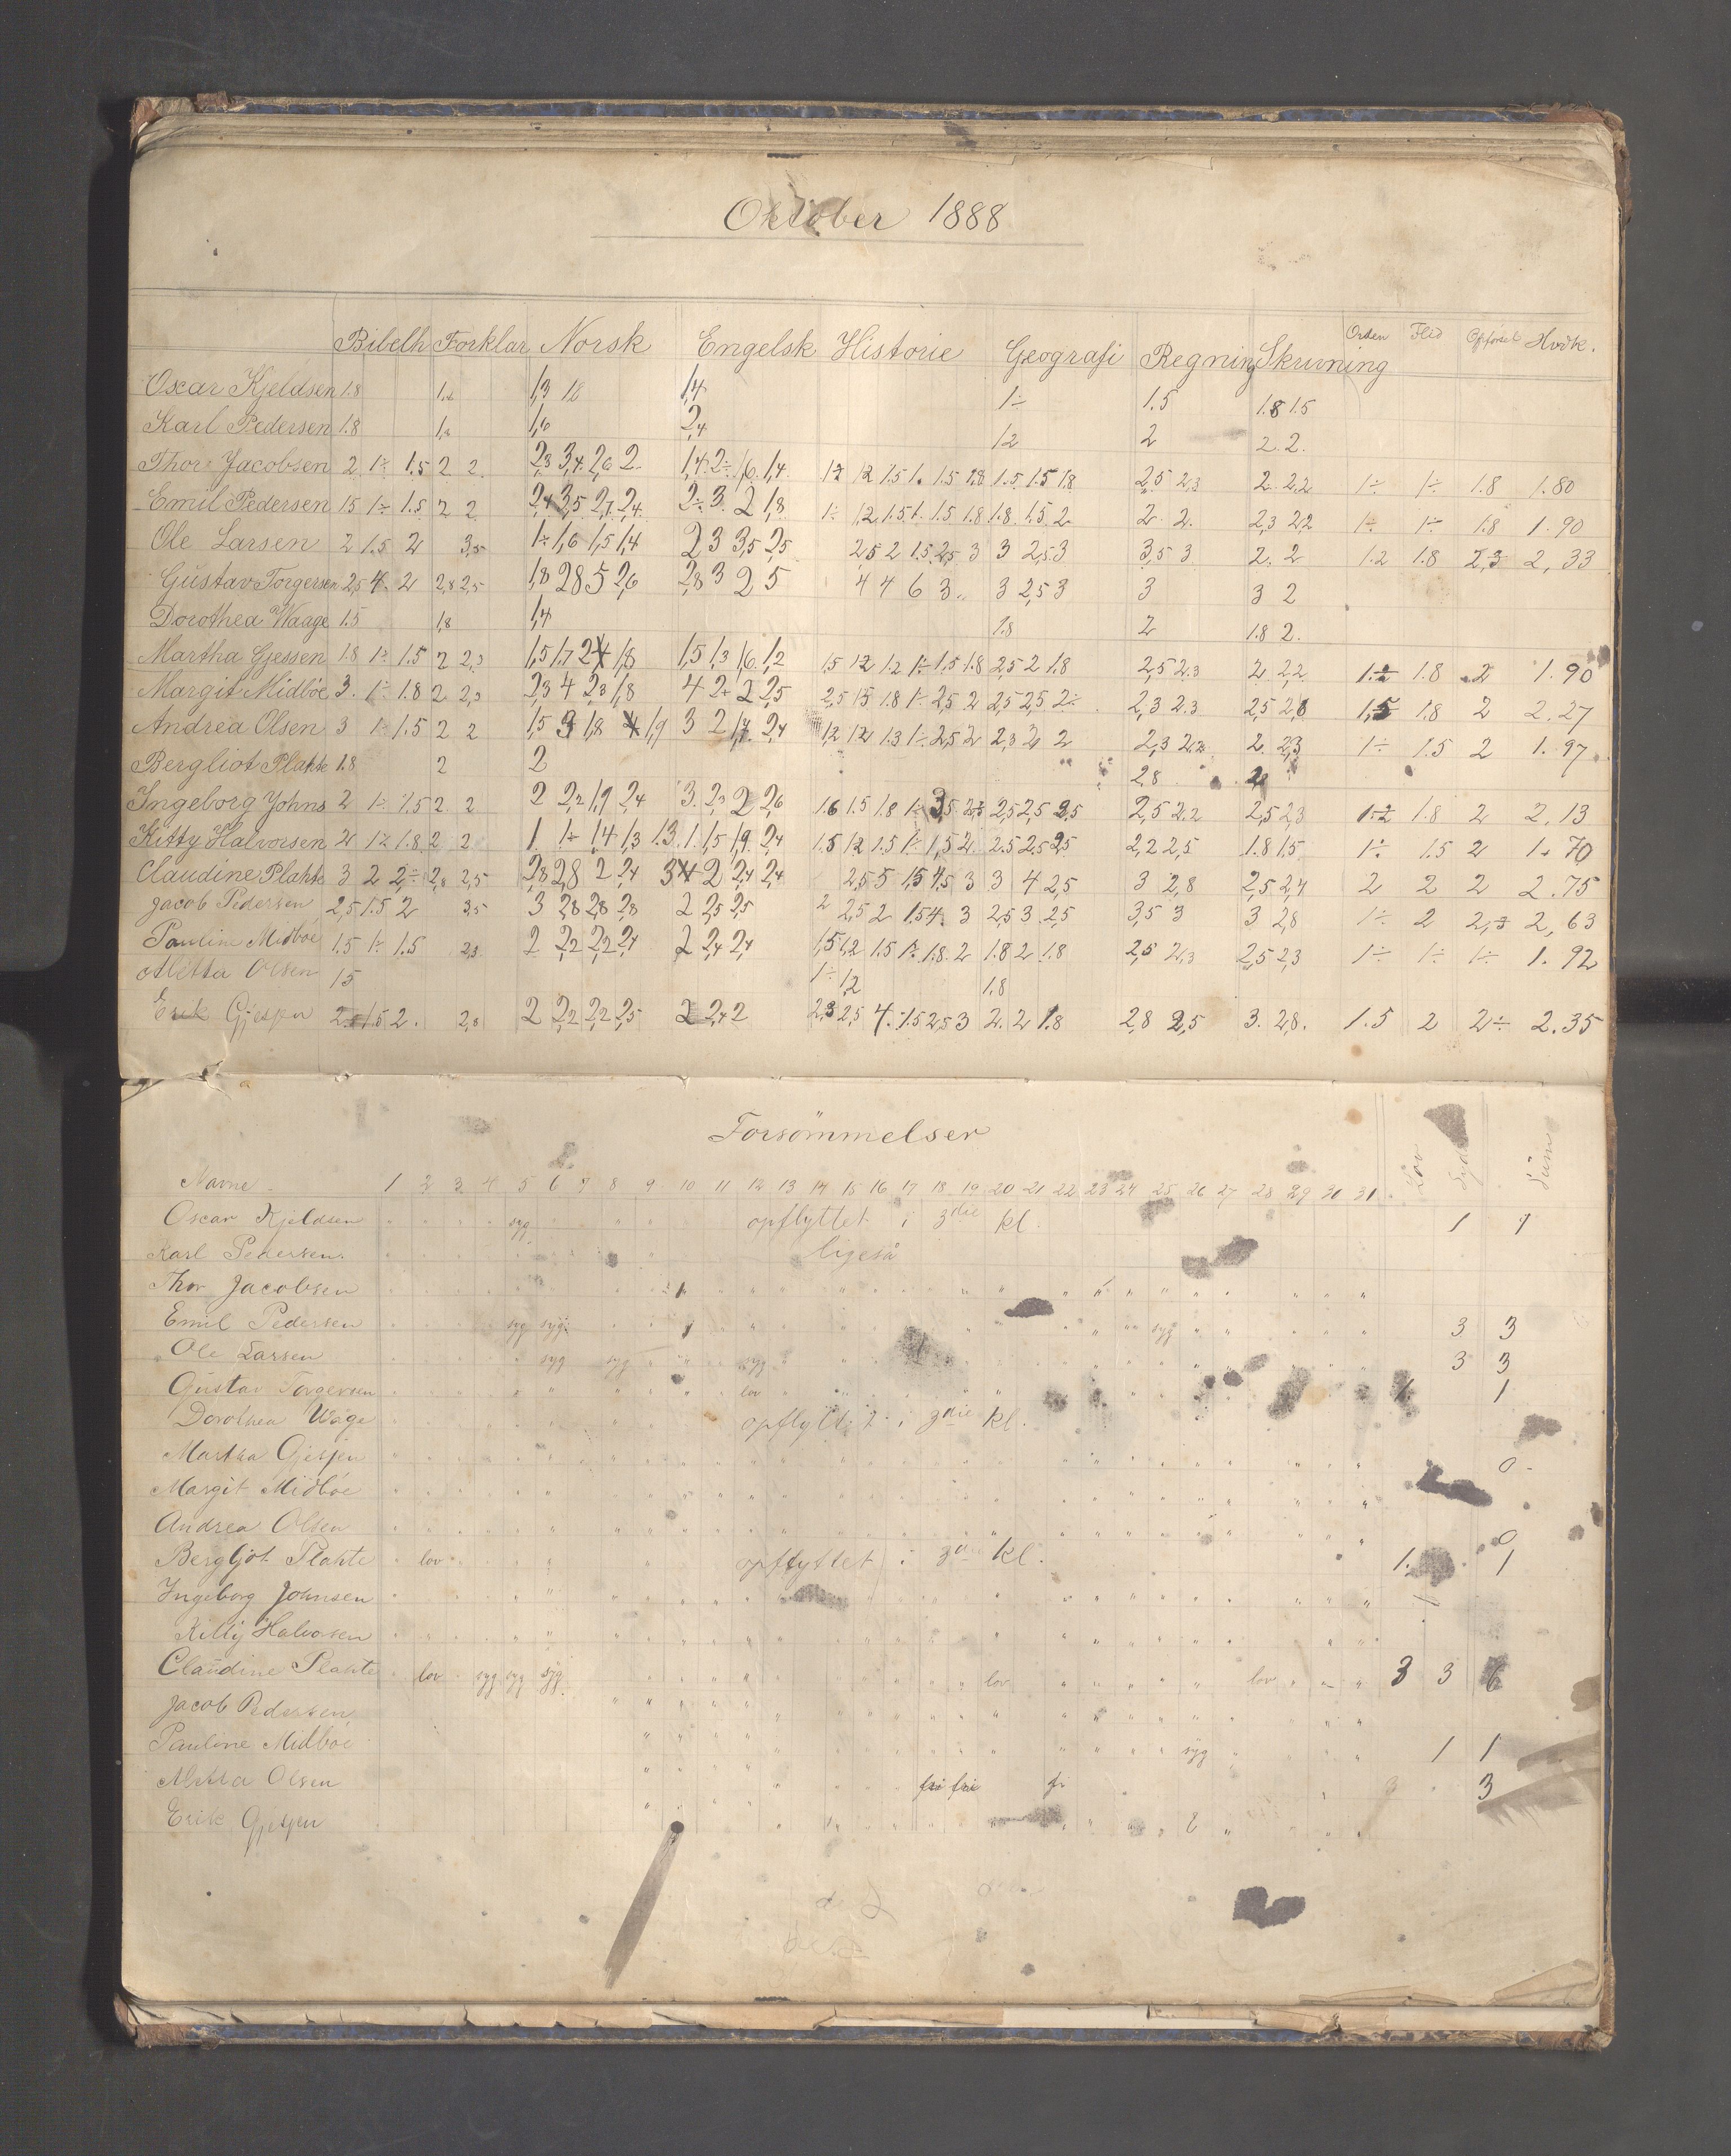 Oktober 1888
Bibelh Forklar Norsk Engelsk Historie Geografi Regning Skrivning Orden Flid Opførsel Hvdk.
Oscar Kjeldsen 1.8 1,3 1,4 1÷ 1.5 1.8 1.5
Karl Pedersen 1.8 1,6 2,4 1,2 2 2. 2.
Thor Jacobsen 2 1÷ 1.5 2 2 2,3 3,4 2,6 2 1,4 2÷ 1,6 1,4 1.5 1.5 1.8 2,5 2,3 2. 2,2 1÷ 1÷ 1.8 1.80
Emil Pedersen 1.5 1÷ 1.5 2 2 2,4 3,5 2,7 2,4 2÷ 3. 2 1,8 1.8. 1.5. 2 2. 2. 2,3 2,2 1÷ 1÷ 1.8 1.90
Ole Larsen 2 1.5 2 3,5 1÷ 1,6 1,5 1,4 2 3 3,5 2,5 2,5 2 1.5 2,5 3 3 2,5 3 3,5 3 2. 2 1.2 1.8 2,3 2,33
Gustav Torgersen 2,5 4. 2 2,8 2,5 1,8 2,8 5 2,6 2,8 3 2 5 4 4 6 3 3 2,5 3 3 3 2
Dorothea Waage 1.5 1,8 1,4 1.8 2 1.8 2.
Martha Gjessen 1.8 1÷ 1.5 2 2,3 1,5 1,7 2 1,8 1,5 1,3 1,6 1,2 1,5 1,2 1,2 1÷ 1.5 1.8 2,5 2 1.8 2,5 2,3 2 2,2 1.8 2 1.90
Margit Midböe 3. 1÷ 1.8 2 2,3 2,3 4 2,3 1,8 4 2+ 2 2,5 2,5 1,5 1.8 1÷ 2,5 2 2,5 2,5 2÷ 2,3 2,3 2,5 2,8 1,5 1.8 2 2.27
Andrea Olsen 3 1÷ 1.5 2 2 1,5 3 1,8 1,9 3 2 1,7 2,4 1,2 1,2 1.3 1÷ 2,5 2 2,3 2 2 2,3 2,3 2. 2,3 1÷ 1.5 2 1.97
Bergliot Plahte 1.8 2 2 2,8
Ingeborg Johns 2 1÷ 1.5 2 2 2 2,2 1,9 2,4 3. 2,3 2 2,6 1.6 1.5 1.8 1÷ 3,5 2,5 2,5 2,5 2,5 2,5 2,2 2,5 2,3 1.8 2 2.13
Kitty Halvorsen 2 1÷ 1.8 2 2 1 1÷ 1,4 1,3 1.3 1. 1,5 1,9 2,4 1.5 1.2 1.5 1÷ 1,5 2 2.5 2,5 2,5 2,2 2,5 1.8 1.5 1÷ 1.5 2 1.70
Claudine Plahte 3 2 2÷ 2,8 2,5 2,8 2,8 2 2,4 3 2 2,4 2,4 3 4 2,5 3 2,8 2,5 2,4 2 2 2 2.75
Jacob Pedersen 2,5 1.5 2 3,5 3 2,8 2,8 2,8 2 2,5 2,5 2 2,5 2 1,5 4. 3 2,5 3 2,5 3,5 3 3 2,8 1÷ 2 2,63
Pauline Midböe 1.5 1÷ 1.5 2,3 2 2,2 2,2 2,4 2 2,4 2,4 1,5 1,2 1.5 1÷ 1.8. 2 1.8 2 1.8 2,5 2,3 2,5 2,3 1÷ 1÷ 1÷ 1.92
Aletta Olsen 1.5 1÷ 1,2 1.8
Erik Gjespen 1.5 2. 2,8 2 2,2 2,2 2,5 2 2,4 2 2,3 2,5 4. 1.5 2,5 3 2. 2 1.8 2,8 2,5 3. 2,8. 1.5 2 2÷ 2.35
Forsömmelser
Navne 1 2 3 4 5 6 7 8 9 10 11 12 13 14 15 16 17 18 19 20 21 22 23 24 25 26 27 28 29 30 31. Lov Sygd Sum
Oscar Kjeldsen syg opflyttet i 3die kl. 1 1
Karl Pedersen. ligeså
Thor Jacobsen
Emil Pedersen syg syg syg 3 3
Ole Larsen syg syg syg 3 3
Gustav Torgersen lov 1 1
Dorothea Wåge opflyttet i 3die kl.
Martha Gjespen 0
Margit Midböe
Andrea Olsen 0
Bergljot Plahte lov opflyttet i 3die kl. 1. 1
Ingeborg Johnsen
Kitty Halvorsen
Claudine Plahte lov syg syg syg lov lov 3 3 6
Jacob Pedersen
Pauline Midböe syg 1 1
Aletta Olsen fri fri fr 3 3
Erik Gjespen